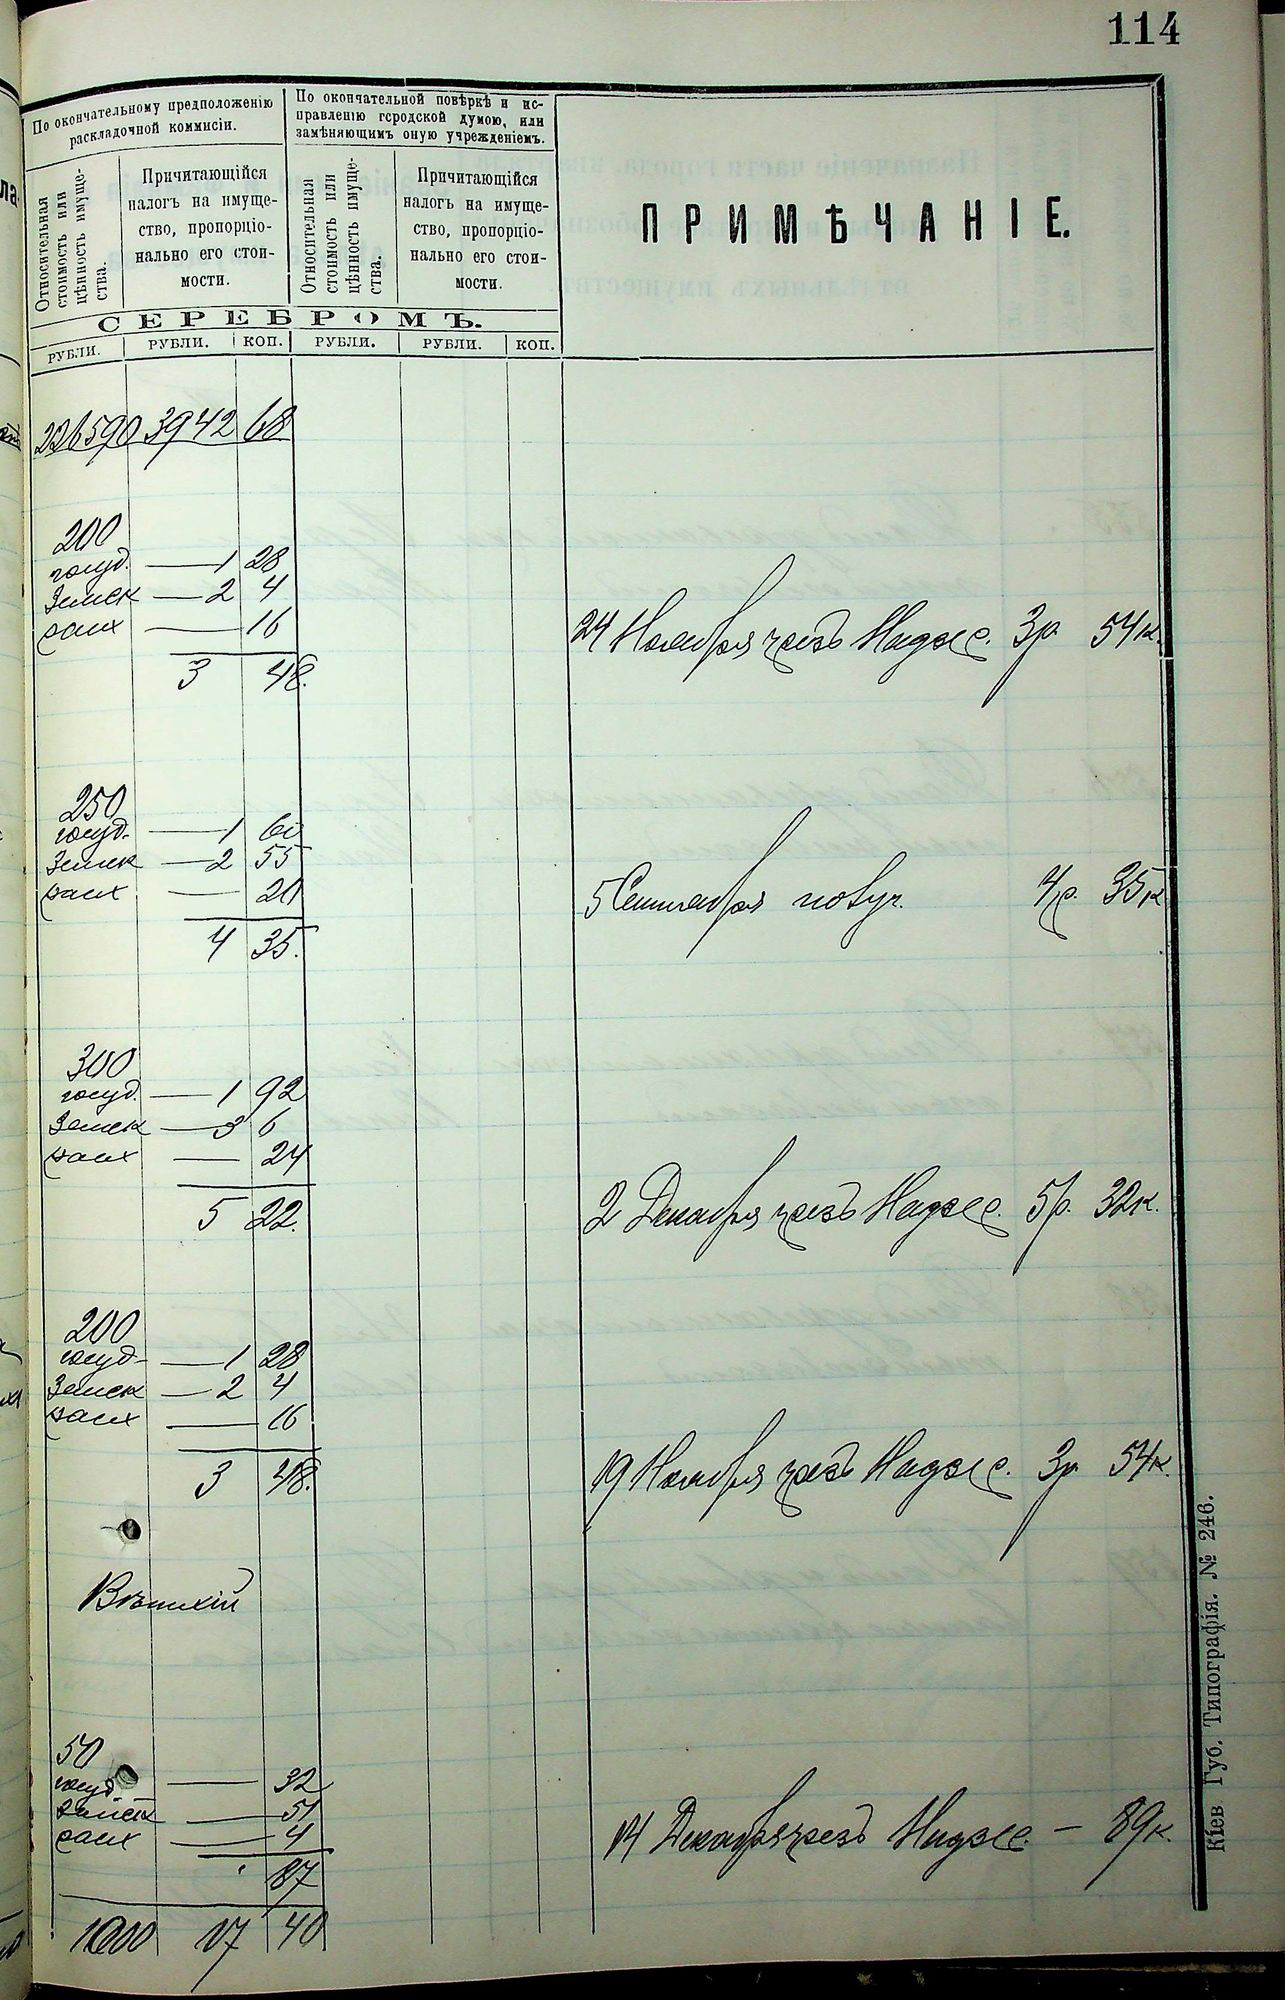 114
По окончательному предположенію
раскладочной коммисіи.
По окончательной повѣркѣ и ис-
правленію городской думою, или
замѣняющимъ оную учрежденіемъ.
Относительная
стоимость или
цѣнность имуще-
ства.
Причитающійся
налогъ на имуще-
ство, пропорціо-
нально его стои-
мости.
Относительная
стоимость или
цѣнность имуще-
ства.
Причитающійся
налогъ на имуще-
ство, пропорціо-
нально его стои-
мости.
ПРИМѢЧАНІЕ.
СЕРЕБРОМЪ.
РУБЛИ. РУБЛИ. КОП. РУБЛИ. РУБЛИ. КОП.
226590 3942 68
200
госуд. — 1 28
Земск — 2 4
— 16
24 Ноября чрезъ Надзс. 3р 54к.
3 48.
250
госуд. — 1 60
Земск — 2 55
— 20
5 Сентября 4р. 35к
4 35.
300
госуд. — 1 92
Земск — 3 6
— 24
5 22.
2 Декабря чрезъ Надзс. 5р. 32к.
200
госуд — 1 28
Земск — 2 4
— 16
3 48.
19 Ноября чрезъ Надзс. 3р 54к.
50
госуд — 32
Земск — 51
— 4
14 Декабря чрезъ Надзс. — 89к.
87
1000 17 40
Кіев. Губ. Типографія. № 246.